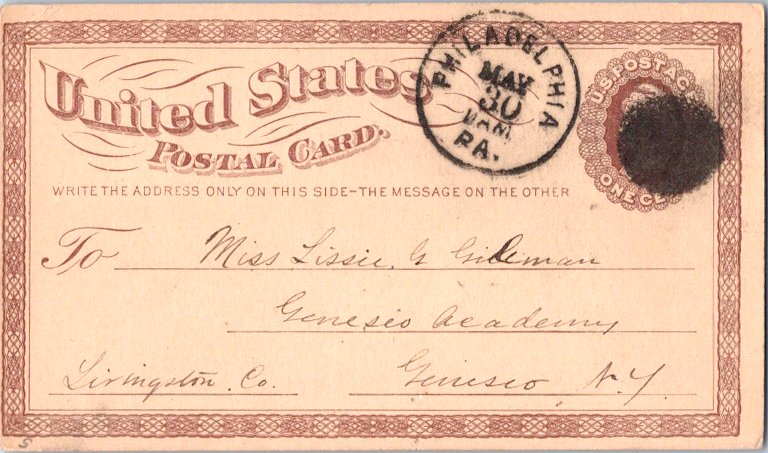 United States
POSTAL CARD.
WRITE THE ADDRESS ONLY ON THIS SIDE-THE MESSAGE ON THE OTHER
PHILADELPHIA
MAY
30
AM
PA.
U.S. POSTAGE
ONE
To Miss Lissie. G Gilman
Geneseo Academy
Livingston. Co. Geneseo N.Y.